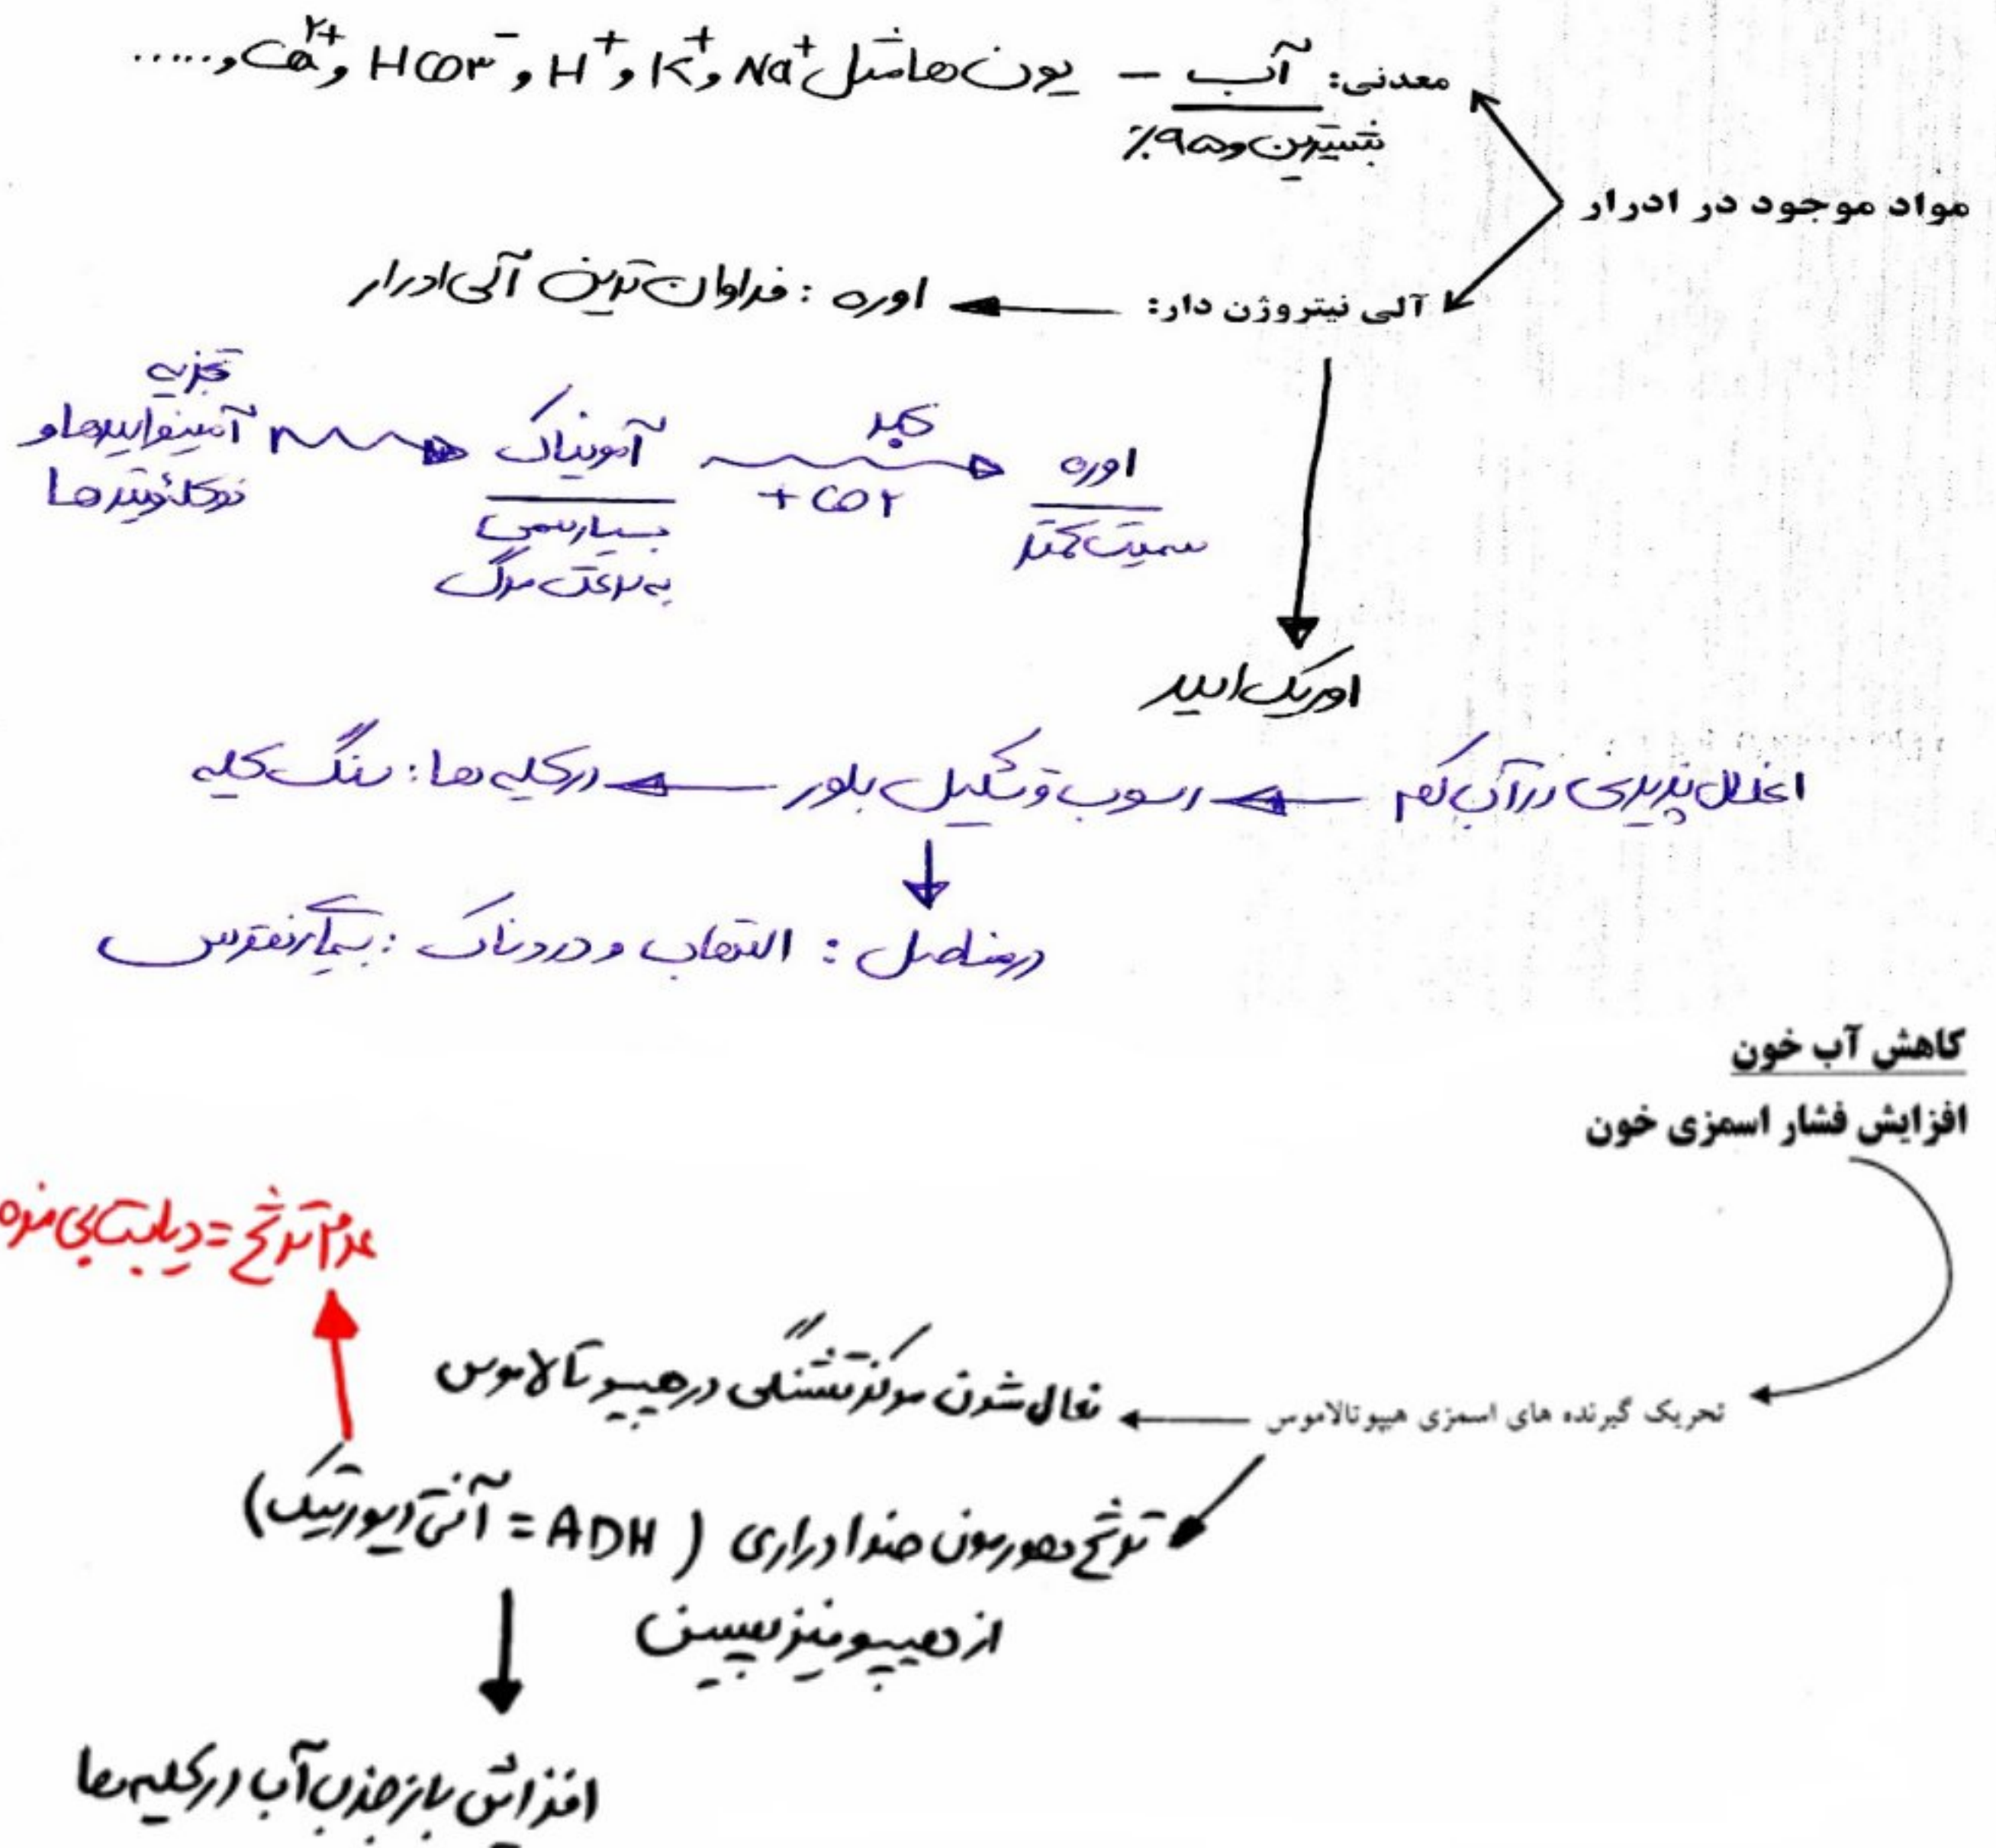 معدنی: آب - یون ها مثل Na⁺ و K⁺ و H⁺ و HCO۳⁻ و Ca²⁺ و .....
بیشترین و ۹۵٪
مواد موجود در ادرار
آلی نیتروژن دار: اوره : فراوان ترین آلی ادرار
تجزیه
آمینواسیدها و
نوکلئوتیدها
آمونیاک
بسیار سمی
به سرعت مرگ
کبد
+ CO۲
اوره
سمیت کمتر
اوریک اسید
انحلال پذیری در آب کم
رسوب و تشکیل بلور
در کلیه ها : سنگ کلیه
در مفاصل : التهاب و دردناک : بیماری نقرس
کاهش آب خون
افزایش فشار اسمزی خون
تحریک گیرنده های اسمزی هیپوتالاموس
فعال شدن مرکز تشنگی در هیپوتالاموس
ترشح هورمون ضد ادراری ( ADH = آنتی دیورتیک)
از هیپوفیز پسین
عدم ترشح = دیابت بی مزه
افزایش بازجذب آب در کلیه ها